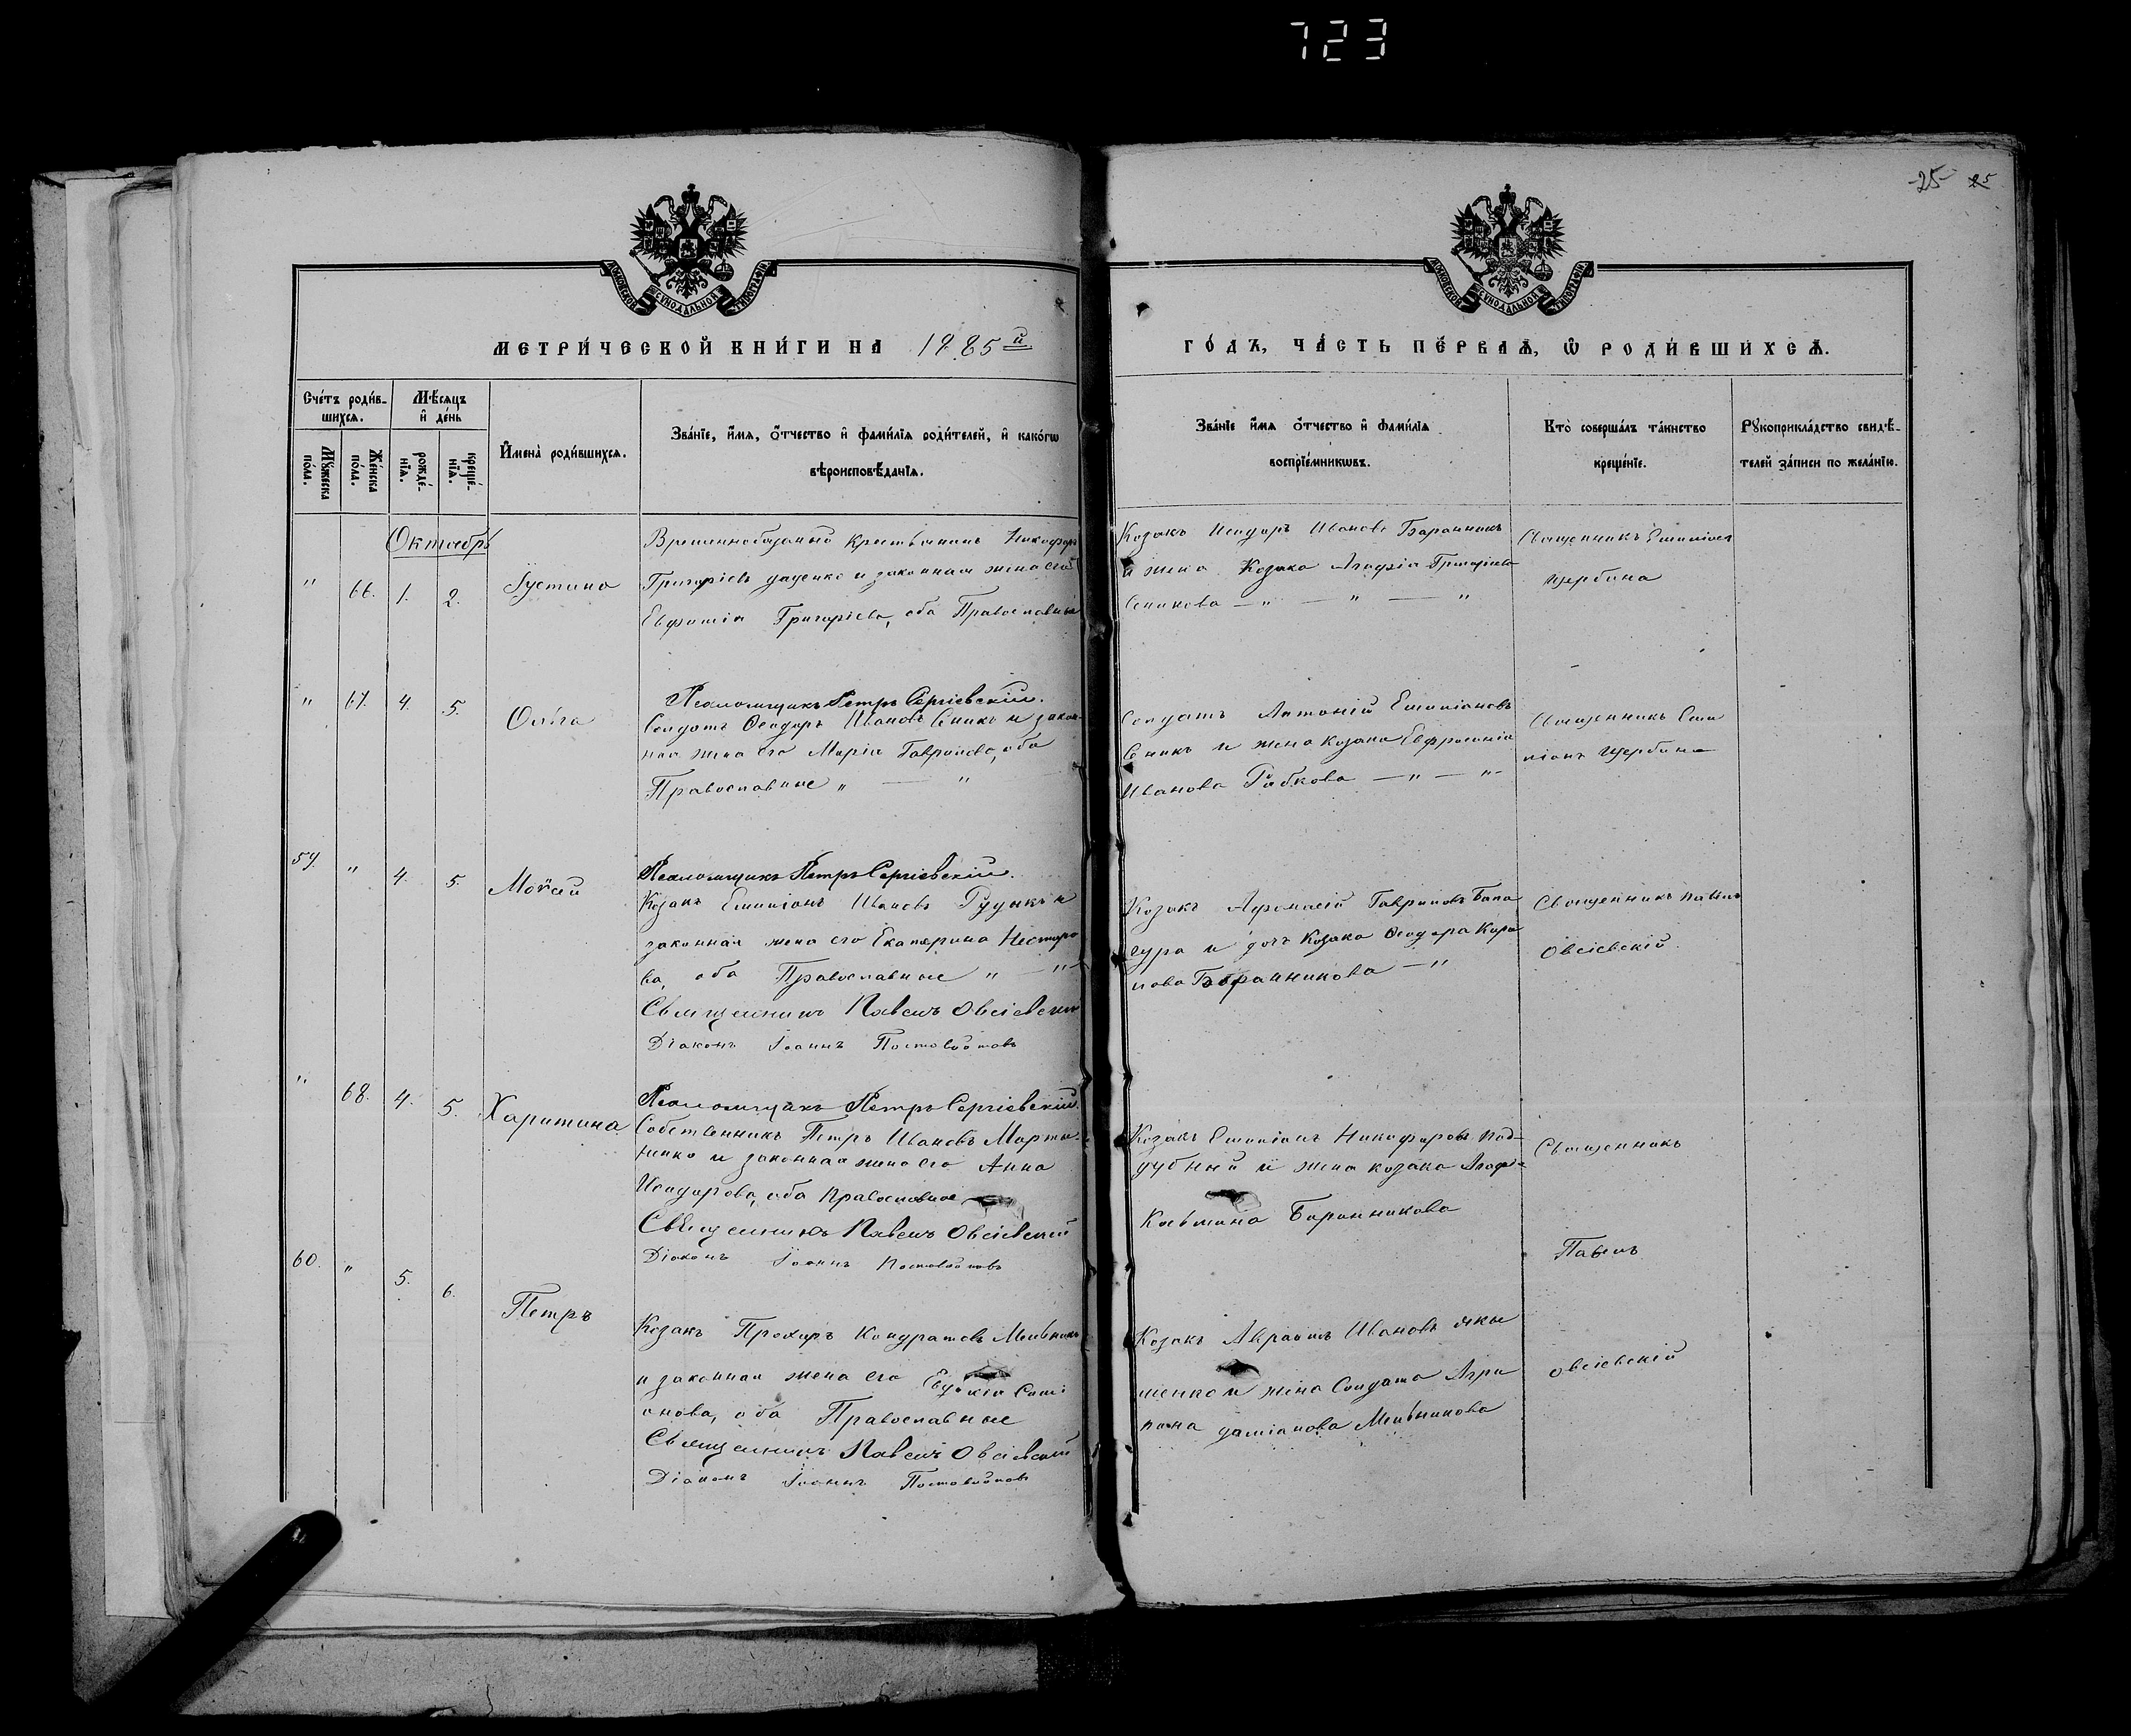 723
25 25
МОСКОВСКОЙ СѴНОДАЛЬНОЙ ТИПОГРАФІИ
МОСКОВСКОЙ СѴНОДАЛЬНОЙ ТИПОГРАФІИ
МЕТРИ́ЧЕСКОЙ КНИ́ГИ НА 1885й
ГО́ДЪ, ЧА́СТЬ ПЕ́РВАѦ, Ѽ РОДИ́ВШИХСѦ.
Сче́тъ роди́в-
шихся.
Мѣ́сяцъ
и҆ де́нь
Мꙋ́жеска по́ла.
Же́нска по́ла.
рожде́-
нїя.
креще́-
нїя.
И҆мена̀ роди́вшихся.
Зва́нїе, и҆́мя, о҆́тчество и҆ фами́лїя роди́телей, и҆ како́гѡ
вѣроисповѣ́данїя.
Зва́нїе и҆́мя о҆́тчество и҆ фами́лїя
воспрїе́мникѡвъ.
Кто̀ соверша́лъ та́инство
креще́нїе.
Рꙋкоприкла́дство свидѣ́-
телей за́писи по жела́нїю.
Октябрь
" 66. 1. 2. Іустина
Временнобязаный крестьянинъ Никифоръ
Григоріевъ Даценко и законная жена его
Евфимія Григоріева, оба Православные
Козакъ Исидоръ Ивановъ Баранникъ
и жена Козака Агафія Григоріева
Сеникова — " — " — "
Священникъ Емиліанъ
Щербина
Псаломщикъ Петръ Сергіевскій.
" 67. 4. 5. Ольга
Солдатъ Ѳеодоръ Ивановъ Сеникъ и закон-
ная жена его Марія Гаврилова, оба
Православные " — "
Солдатъ Антоній Емиліановъ
Сеникъ и жена козака Евфросинія
Иванова Рябкова — " — "
Священникъ Еми
ліанъ Щербина
Псаломщикъ Петръ Сергіевскій.
59. " 4. 5. Моѵсей
Козакъ Емиліанъ Ивановъ Рудыкъ и
законная жена его Екатерина Несторо
ва, оба Православные " — "
Священникъ Павелъ Овсіевскій
Діаконъ Іоаннъ Постовойтовъ
Козакъ Афанасій Гавриловъ Бала
гура и дочь Козака Ѳеодора Кири
лова Баранникова — "
Священникъ Павелъ
Овсіевскій
Псаломщикъ Петръ Сергіевскій.
" 68. 4. 5. Харитина
Собственникъ Петръ Ивановъ Марты
ненко и законная жена его Анна
Исидорова, оба Православные
Священникъ Павелъ Овсіевскій
Діаконъ Іоаннъ Постовойтовъ
Козакъ Емиліанъ Никифоровъ Под-
дубный и жена козака Агафія
Косьмина Баранникова
Священникъ
Павелъ
60. " 5. 6. Петръ
Козакъ Прохоръ Кондратовъ Мельникъ
и законная жена его Евдокія Сими
онова, оба Православные
Священникъ Павелъ Овсіевскій
Діаконъ Іоаннъ Постовойтовъ
Козакъ Авраамъ Ивановъ Яки
менко и жена Солдата Агри
пина Даміанова Мельникова
Овсіевскій